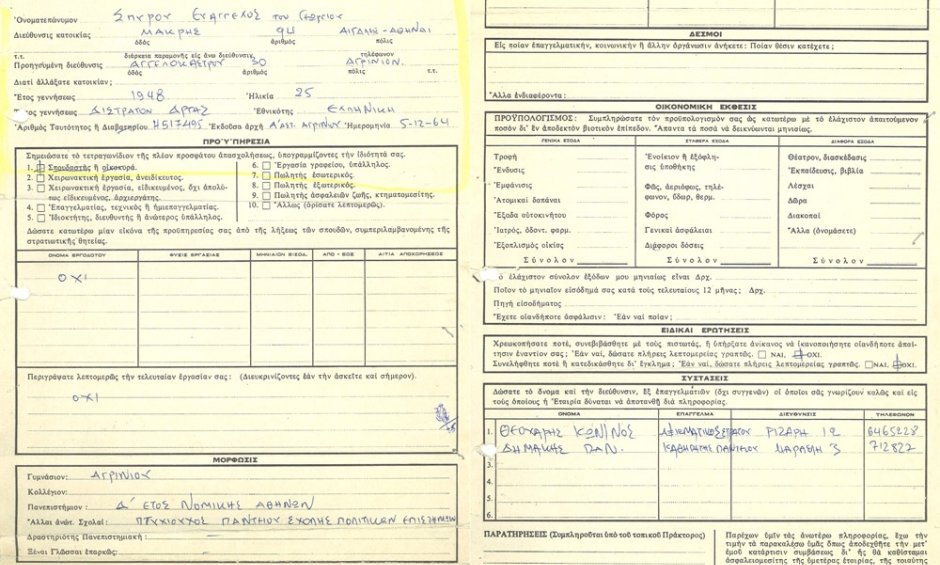 Ὀνοματεπώνυμον Σπύρου Ευάγγελος του Γεωργίου
Διεύθυνσις κατοικίας ΜΑΚΡΗΣ 94 ΑΙΓΑΛΕ-ΑΘΗΝΑΙ
ὁδός ἀριθμός πόλις
τ.τ. διάρκεια παραμονῆς εἰς ἄνω διεύθυνσιν τηλέφωνον
Προηγουμένη διεύθυνσις ΑΓΓΕΛΟΚΑΣΤΡΟΥ 30 ΑΓΡΙΝΙΟΝ
ὁδός ἀριθμός πόλις τ.τ.
Διατί ἀλλάξατε κατοικίαν;
Ἔτος γεννήσεως 1948 Ἡλικία 25
Τόπος γεννήσεως ΔΙΣΤΡΑΤΟΝ ΑΡΤΑΣ Ἐθνικότης ΕΛΛΗΝΙΚΗ
Ἀριθμὸς Ταυτότητος ἢ Διαβατηρίου Η517495 Ἐκδοῦσα ἀρχὴ Α' ΑΣΤ. ΑΓΡΙΝΙΟΥ Ἡμερομηνία 5-12-64
ΠΡΟΫΠΗΡΕΣΙΑ
Σημειώσατε τὸ τετραγωνίδιον τῆς πλέον προσφάτου ἀπασχολήσεως, ὑπογραμμίζοντες τὴν ἰδιότητά σας.
1. Σπουδαστὴς ἢ οἰκοκυρά.
2. Χειρωνακτικὴ ἐργασία, ἀνειδίκευτος.
3. Χειρωνακτικὴ ἐργασία, εἰδικευμένος, ὄχι ἀπολύτως εἰδικευμένος, ἀρχιεργάτης.
4. Ἐπαγγελματίας, τεχνικὸς ἢ ἡμιεπαγγελματίας.
5. Ἰδιοκτήτης, διευθυντὴς ἢ ἀνώτερος ὑπάλληλος.
6. Ἐργασία γραφείου, ὑπάλληλος.
7. Πωλητὴς ἐσωτερικός.
8. Πωλητὴς ἐξωτερικός.
9. Πωλητὴς ἀσφαλειῶν ζωῆς, κτηματομεσίτης.
10. Ἄλλως (ὁρίσατε λεπτομερῶς).
Δώσατε κατωτέρω μίαν εἰκόνα τῆς προϋπηρεσίας σας ἀπὸ τῆς λήξεως τῶν σπουδῶν, συμπεριλαμβανομένης τῆς
στρατιωτικῆς θητείας.
ΟΝΟΜΑ ΕΡΓΟΔΟΤΟΥ ΦΥΣΙΣ ΕΡΓΑΣΙΑΣ ΜΗΝΙΑΙΟΝ ΕΙΣΟΔ. ΑΠΟ - ΕΩΣ ΑΙΤΙΑ ΑΠΟΧΩΡΗΣΕΩΣ
ΟΧΙ
Περιγράψατε λεπτομερῶς τὴν τελευταίαν ἐργασίαν σας: (Διευκρινίζοντες ἐὰν τὴν ἀσκεῖτε καὶ σήμερον).
ΟΧΙ
ΜΟΡΦΩΣΙΣ
Γυμνάσιον: ΑΓΡΙΝΙΟΥ
Κολλέγιον:
Πανεπιστήμιον: Δ' ΕΤΟΣ ΝΟΜΙΚΗΣ ΑΘΗΝΩΝ
Ἄλλαι ἀνώτ. Σχολαί: ΠΤΥΧΙΟΥΧΟΣ ΠΑΝΤΕΙΟΥ ΣΧΟΛΗΣ ΠΟΛΙΤΙΚΩΝ ΕΠΙΣΤΗΜΩΝ
Δραστηριότης Πανεπιστημιακή:
Ξέναι Γλῶσσαι ἐπαρκῶς:
ΔΕΣΜΟΙ
Εἰς ποίαν ἐπαγγελματικήν, κοινωνικὴν ἢ ἄλλην ὀργάνωσιν ἀνήκετε: Ποίαν θέσιν κατέχετε;
Ἄλλα ἐνδιαφέροντα:
ΟΙΚΟΝΟΜΙΚΗ ΕΚΘΕΣΙΣ
ΠΡΟΫΠΟΛΟΓΙΣΜΟΣ: Συμπληρώσατε τὸν προϋπολογισμόν σας ὡς κατωτέρω μὲ τὸ ἐλάχιστον ἀπαιτούμενον
ποσὸν δι' ἓν ἀποδεκτὸν βιοτικὸν ἐπίπεδον. Ἅπαντα τὰ ποσὰ νὰ δεικνύωνται μηνιαίως.
ΓΕΝΙΚΑ ΕΞΟΔΑ ΣΤΑΘΕΡΑ ΕΞΟΔΑ ΔΙΑΦΟΡΑ ΕΞΟΔΑ
Τροφὴ
Ἔνδυσις
Ἐμφάνισις
Ἀτομικαὶ δαπάναι
Ἔξοδα αὐτοκινήτου
Ἰατρός, ὀδοντ. φαρμ.
Ἐξοπλισμὸς οἰκίας
Σύνολον
Ἐνοίκιον ἢ ἐξόφλησις ὑποθήκης
Φῶς, ἀεριόφως, τηλέφωνον, ὕδωρ, θερμ.
Φόρος
Γενικαὶ ἀσφάλειαι
Διάφοροι δόσεις
Σύνολον
Θέατρον, διασκέδασις
Ἐκπαίδευσις, βιβλία
Λέσχαι
Δῶρα
Διακοπαὶ
Ἄλλα (ὀνομάσετε)
Σύνολον
Τὸ ἐλάχιστον σύνολον ἐξόδων μου μηνιαίως εἶναι Δρχ.
Ποῖον τὸ μηνιαῖον εἰσόδημά σας κατὰ τοὺς τελευταίους 12 μῆνας; Δρχ.
Πηγὴ εἰσοδήματος
Ἔχετε οἱανδήποτε ἀσφάλισιν: Ἐὰν ναὶ ποίαν;
ΕΙΔΙΚΑΙ ΕΡΩΤΗΣΕΙΣ
Χρεωκοπήσατε ποτέ, συνεβιβάσθητε μὲ τοὺς πιστωτάς, ἢ ὑπήρξατε ἀνίκανος νὰ ἱκανοποιήσητε οἱανδήποτε ἀπαίτησιν
ἐναντίον σας; Ἐὰν ναί, δώσατε πλήρεις λεπτομερείας γραπτῶς. ΝΑΙ. ΟΧΙ.
Συνελήφθητε ποτὲ ἢ κατεδικάσθητε δι' ἔγκλημα; Ἐὰν ναί, δώσατε πλήρεις λεπτομερείας γραπτῶς. ΝΑΙ. ΟΧΙ.
ΣΥΣΤΑΣΕΙΣ
Δώσατε τὸ ὄνομα καὶ τὴν διεύθυνσιν, ἓξ ἐπαγγελματιῶν (ὄχι συγγενῶν) οἱ ὁποῖοι σᾶς γνωρίζουν καλῶς καὶ εἰς
τοὺς ὁποίους ἡ Ἑταιρία δύναται νὰ ἀποτανθῇ διὰ πληροφορίας.
ΟΝΟΜΑ ΕΠΑΓΓΕΛΜΑ ΔΙΕΥΘΥΝΣΙΣ ΤΗΛΕΦΩΝΟΝ
1. ΘΕΟΧΑΡΗΣ ΚΩΝ/ΝΟΣ ΑΞΙΩΜΑΤΙΚΟΣ ΣΤΡΑΤΟΥ ΡΙΖΑΡΗ 12 6465228
2. ΔΗΜΑΚΗΣ ΠΑΝ. ΚΑΘΗΓΗΤΗΣ ΠΑΝΤΕΙΟΥ 3 712827
3.
4.
5.
6.
ΠΑΡΑΤΗΡΗΣΕΙΣ (Συμπληροῦται ὑπὸ τοῦ τοπικοῦ Πράκτορος)
Παρέχων ὑμῖν τὰς ἀνωτέρω πληροφορίας, ἔχω τὴν
τιμὴν νὰ παρακαλέσω ὑμᾶς ὅπως ἀποδεχθῆτε τὴν μετ'
ἐμοῦ κατάρτισιν συμβάσεως δι' ἧς θὰ καθίσταμαι
ἀσφαλειομεσίτης τῆς ὑμετέρας ἑταιρίας, τῆς τοιαύτης